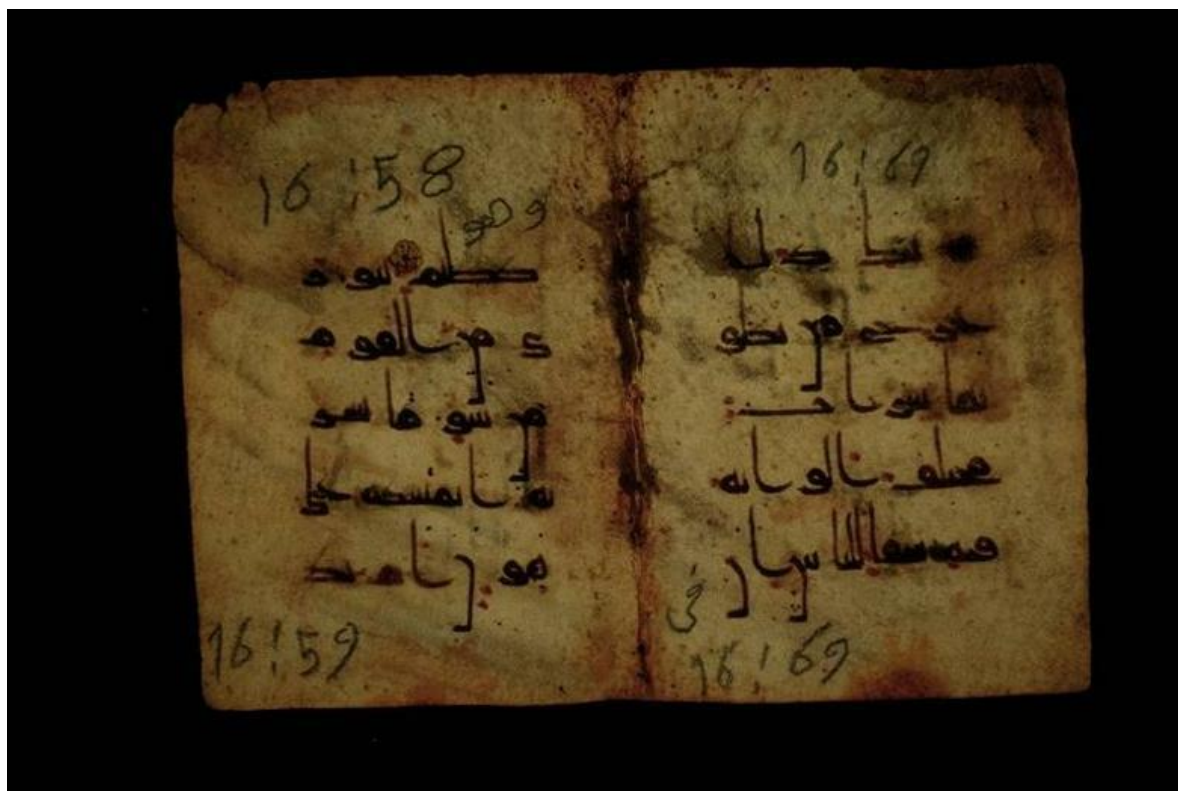 16:69
ربك ذللا
يخرج من بطو
نها شراب
مختلف الونه
فيه شفا للناس ان
في
16:69
16:58
وهو
كظيم يتور
ى من القوم
من سو ما بشر
به ايمسكه على
هون ام يد
16:59